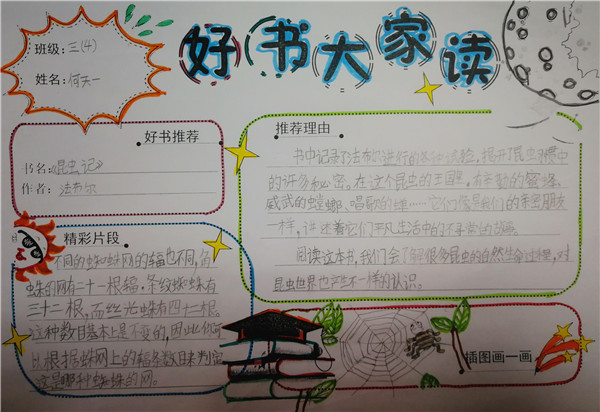 好书大家读
班级：三（4）
姓名：何天一
好书推荐
书名：《昆虫记》
作者：法布尔
推荐理由
书中记录了法布尔进行的各种试验，揭开了昆虫习惯中
的许多秘密。在这个昆虫的王国里，有辛勤的
威武的螳螂、唱歌的蝉……它们像是我们的亲密朋友
一样，讲述着它们平凡生活中的不寻常的故事。
阅读这本书，我们会了解很多昆虫的自然生命过程，对
昆虫世界也产生不一样的认识。
精彩片段
不同的蜘蛛网的辐也不同，角
蛛的网有二十一根辐，条纹蛛有
三十二根，而丝光蛛有四十二根。
这种数目基本上是不变的，因此你可
以根据蛛网上的辐条数目来判定
这是哪种蜘蛛的网。
插图画一画